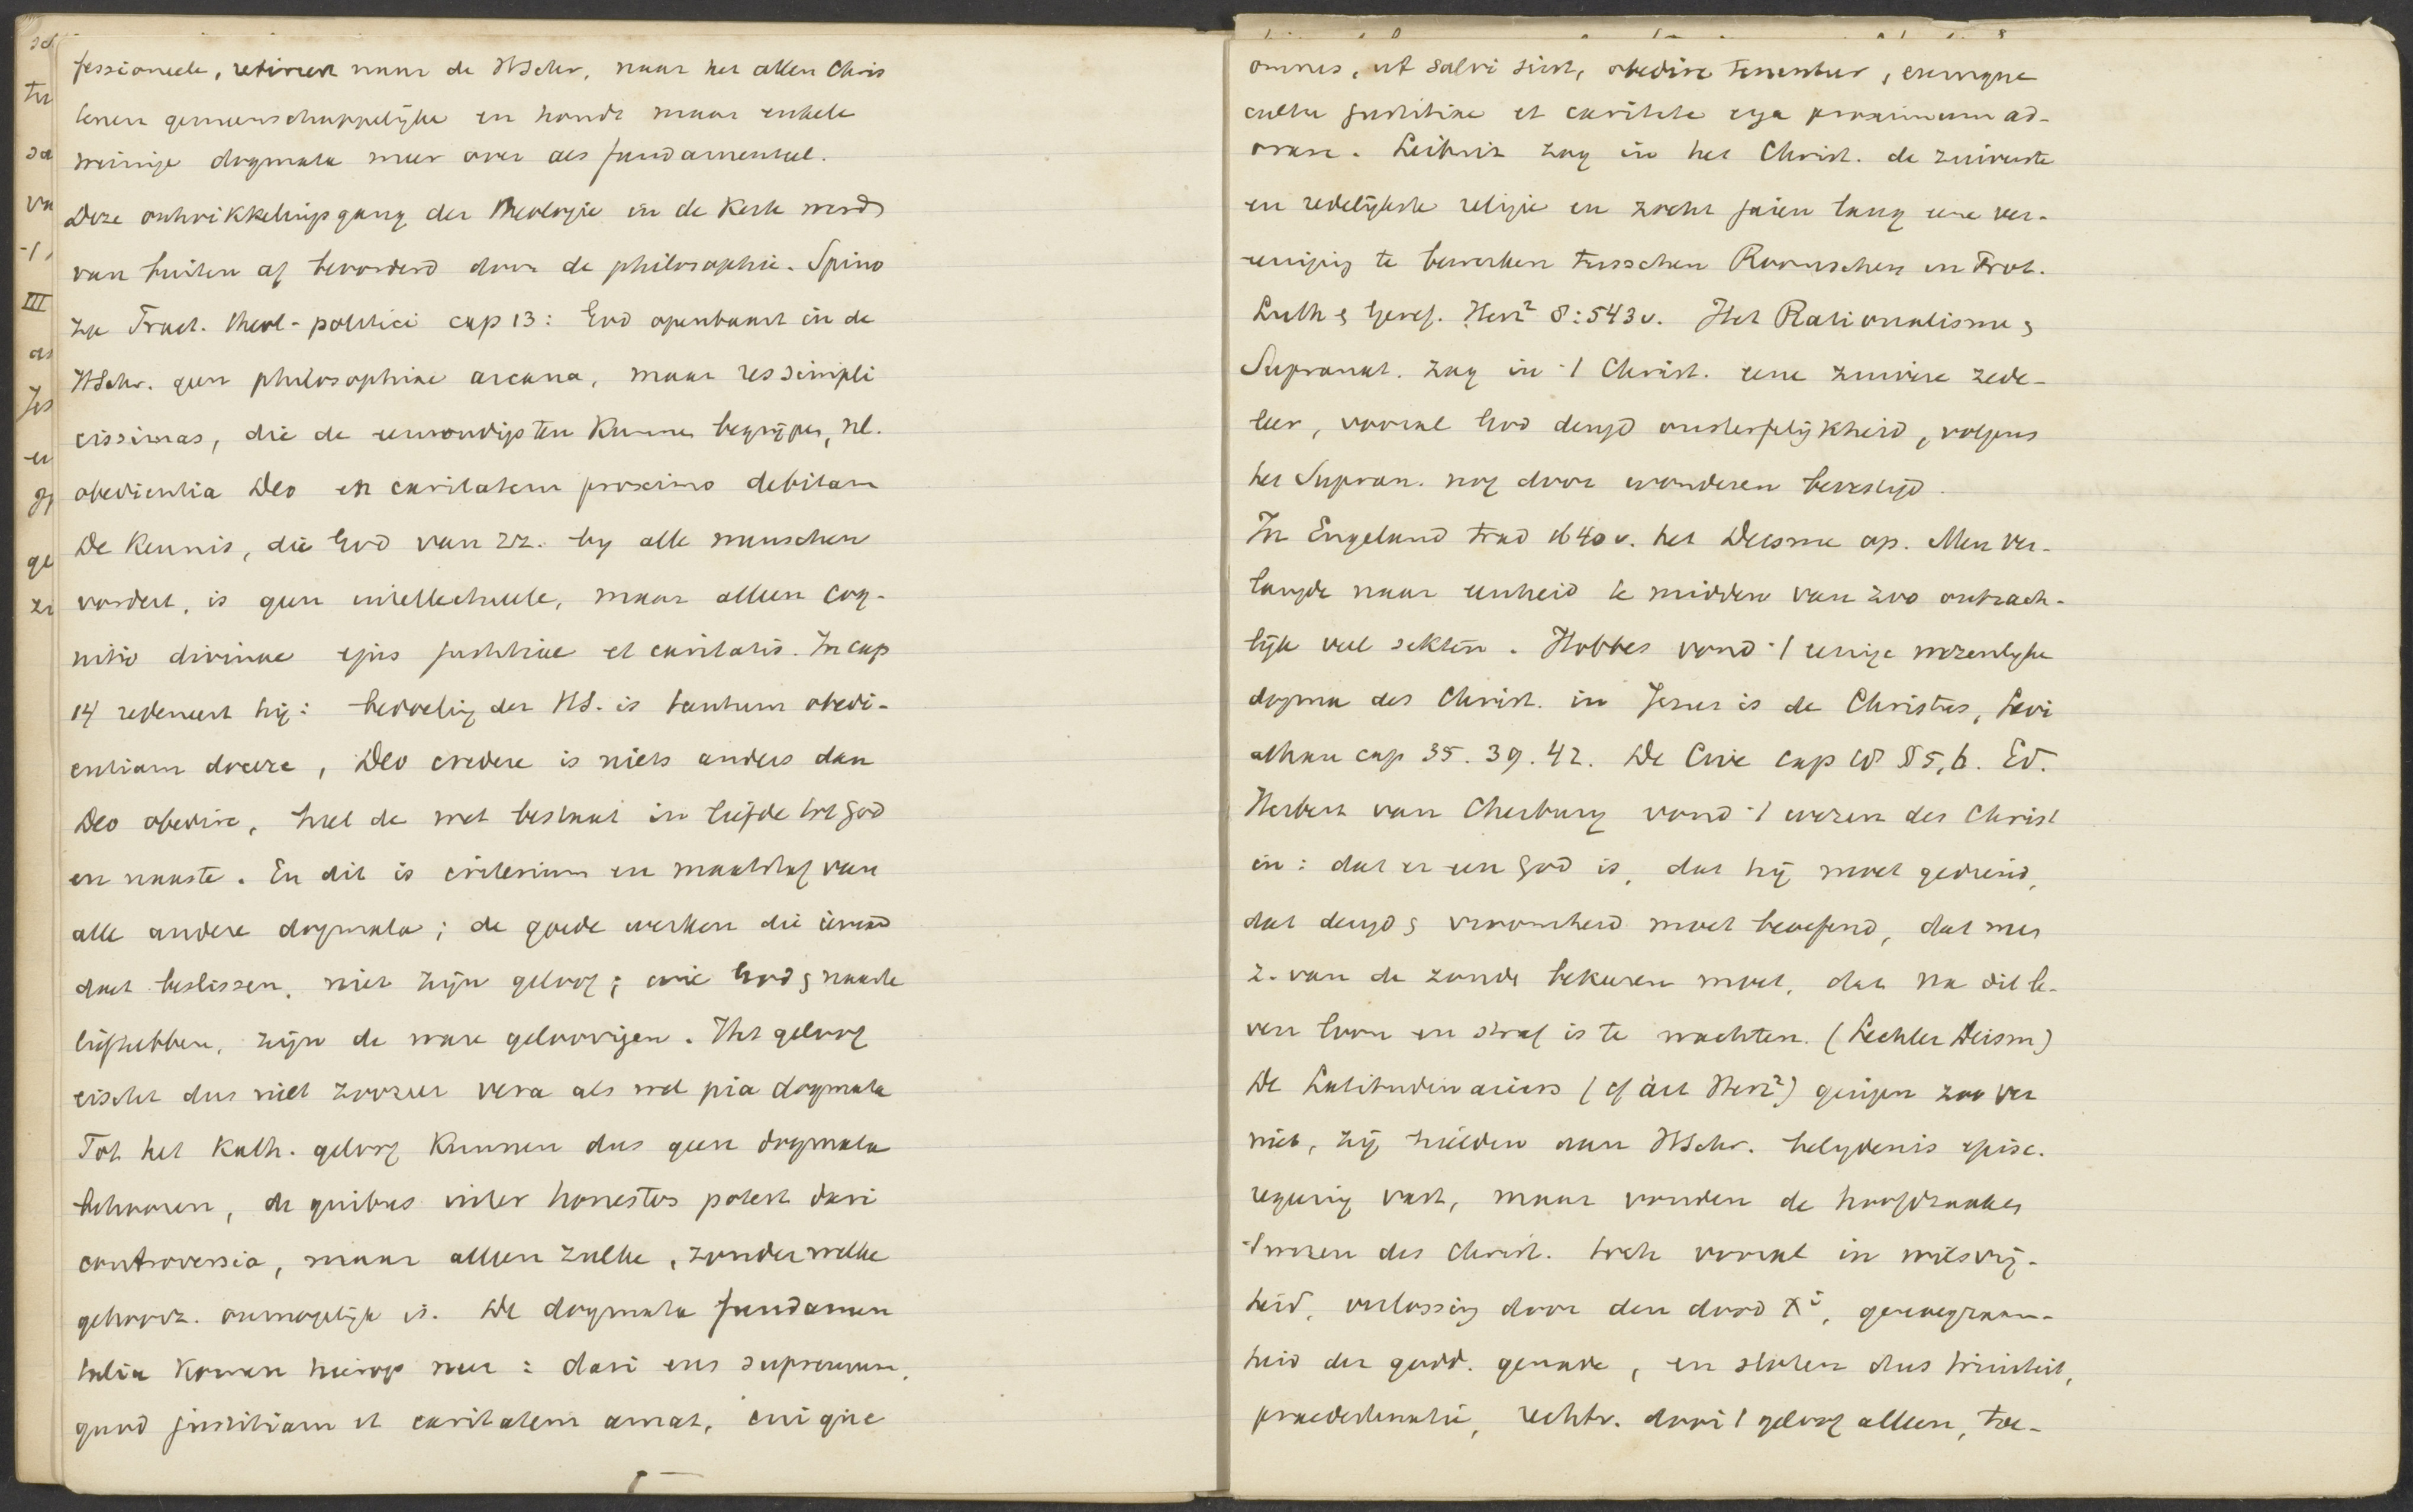 fessioneele, retireer naar de HSchr, naar het allen Chris
tenen gemeenschappelijke en houdt maar enkele
weinige dogmata meer over als fundamenteel.
Deze ontwikkelingsgang der theologie in de Kerk werd
van buiten af bevorderd door de philosophie. Spino
za Tract. theol-politici cap 13: God openbaart in de
HSchr. geen philosophiae arcana, maar res simpli
cissimas, die de eenvoudigsten kunnen begrijpen, nl.
obedientia Deo en caritatem proximo debitam
De kennis, die God van zz. by alle menschen
vordert, is geen intellectueele, maar alleen cog-
nitio divinae ejus justitiae et caritatis. In cap
14 redeneert hij: bedoeling der HS. is tantum obedi-
entiam docere, Deo credere is niets anders dan
Deo obedire, heel de wet bestaat in liefde tot God
en naaste. En dit is criterium en maatstaf van
alle andere dogmata; de goede werken die iemand
doet beslissen, niet zijn geloof; wie God & naaste
liefhebben, zijn de ware geloovigen. Het geloof
eischt dus niet zoozeer vera als wel pia dogmata
Tot het Kath. geloof kunnen dus geen dogmata
behooren, de quibus inter honestos potest dari
controversia, maar alleen zulke, zonder welke
gehoorz. onmogelijk is. De dogmata fundamen
talia komen hierop neer: dari ens supremum,
quod justitiam et caritatem amat, cui que
omnes, ut salvi sint, obedire tenentur, eumque
cultu justitiae et caritate erga proximum ad-
orare. Leibniz zag in het Christ. de zuiverste
en redelijkste religie en zocht jaren lang eene ver-
eeniging te bewerken tusschen Roomschen en Prot.
Luth & Geref. Herz² 8:543v. Het Rationalisme &
Supranat. zag in -/ Christ. eene zuivere zede-
leer, vooral God deugd onsterfelijkheid, volgens
het Supran. nog door wonderen bevestigd.
In Engeland trad 1640v. het Deisme op. Men ver-
langde naar eenheid te midden van zoo ontzach-
lijk veel sekten. Hobbes vond -/ eenige wezenlijke
dogma des Christ. in Jezus is de Christus, Levi
athan cap 35. 39. 42. De Cive cap 18 § 5, 6. Ed.
Herbert van Cherbury vond -/ wezen des Christ
in: dat er een God is, dat hij moet gediend,
dat deugd & vroomheid moet beoefend, dat men
z. van de zonde bekeeren moet, dat na dit le-
ven loon en straf is te wachten. (Lechler Deism)
De Latitudinariers (cf art Herz²) gingen zoo ver
niet, zij hielden aan HSchr. belydenis episc.
regering vast, maar vonden de hoofdzaak en
-/ wezen des Christ. toch vooral in wilsvrij-
heid, verlossing door den dood Xi, genoegzaam-
heid der godd. genade, en sloten dus triniteit,
praedestinatie, rechtv. door -/ geloof alleen, toe-